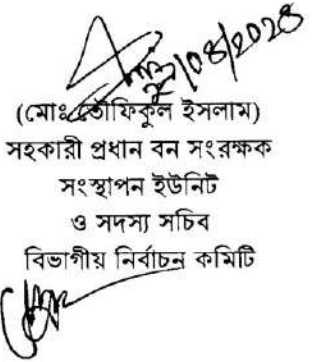 (মোঃ তৌফিকুল ইসলাম)
সহকারী প্রধান বন সংরক্ষক
সংস্থাপন ইউনিট
ও সদস্য সচিব
বিভাগীয় নির্বাচন কমিটি